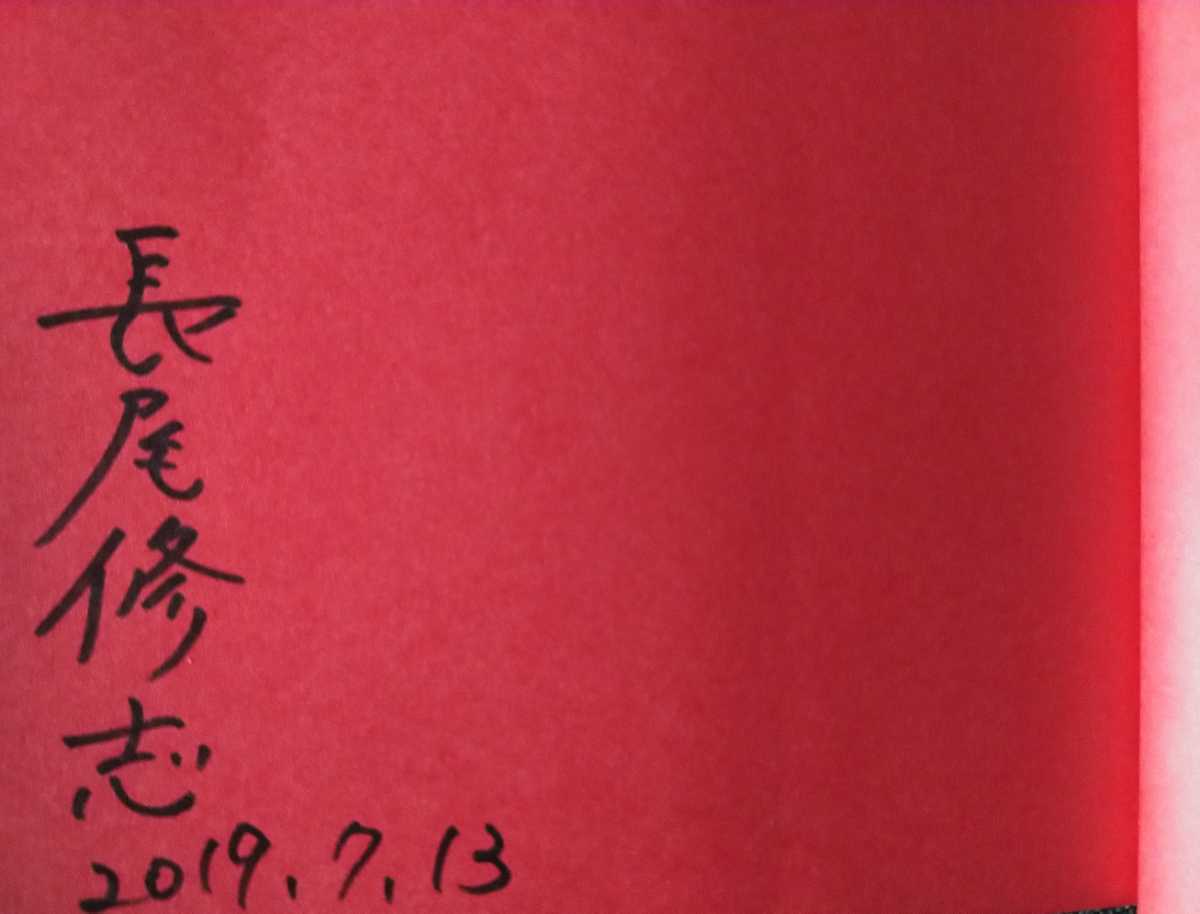 長尾修志
2019.7.13